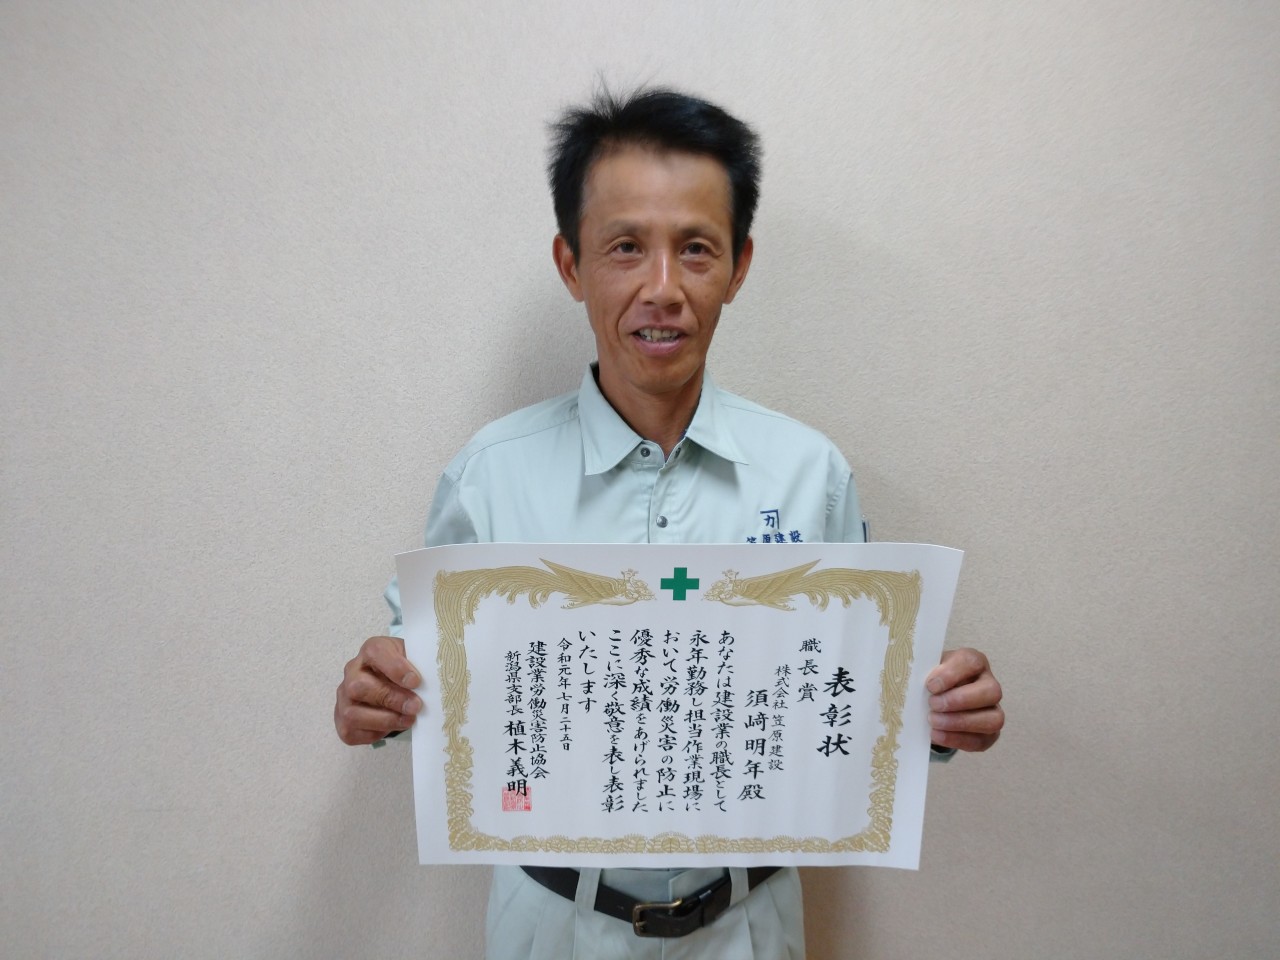 カ
笠原建設
表彰状
職長賞
株式会社 笠原建設
須﨑明年殿
あなたは建設業の職長として
永年勤務し担当作業現場に
おいて労働災害の防止に
優秀な成績をあげられました
ここに深く敬意を表し表彰
いたします
令和元年七月二十五日
建設業労働災害防止協会
新潟県支部長 植木義明